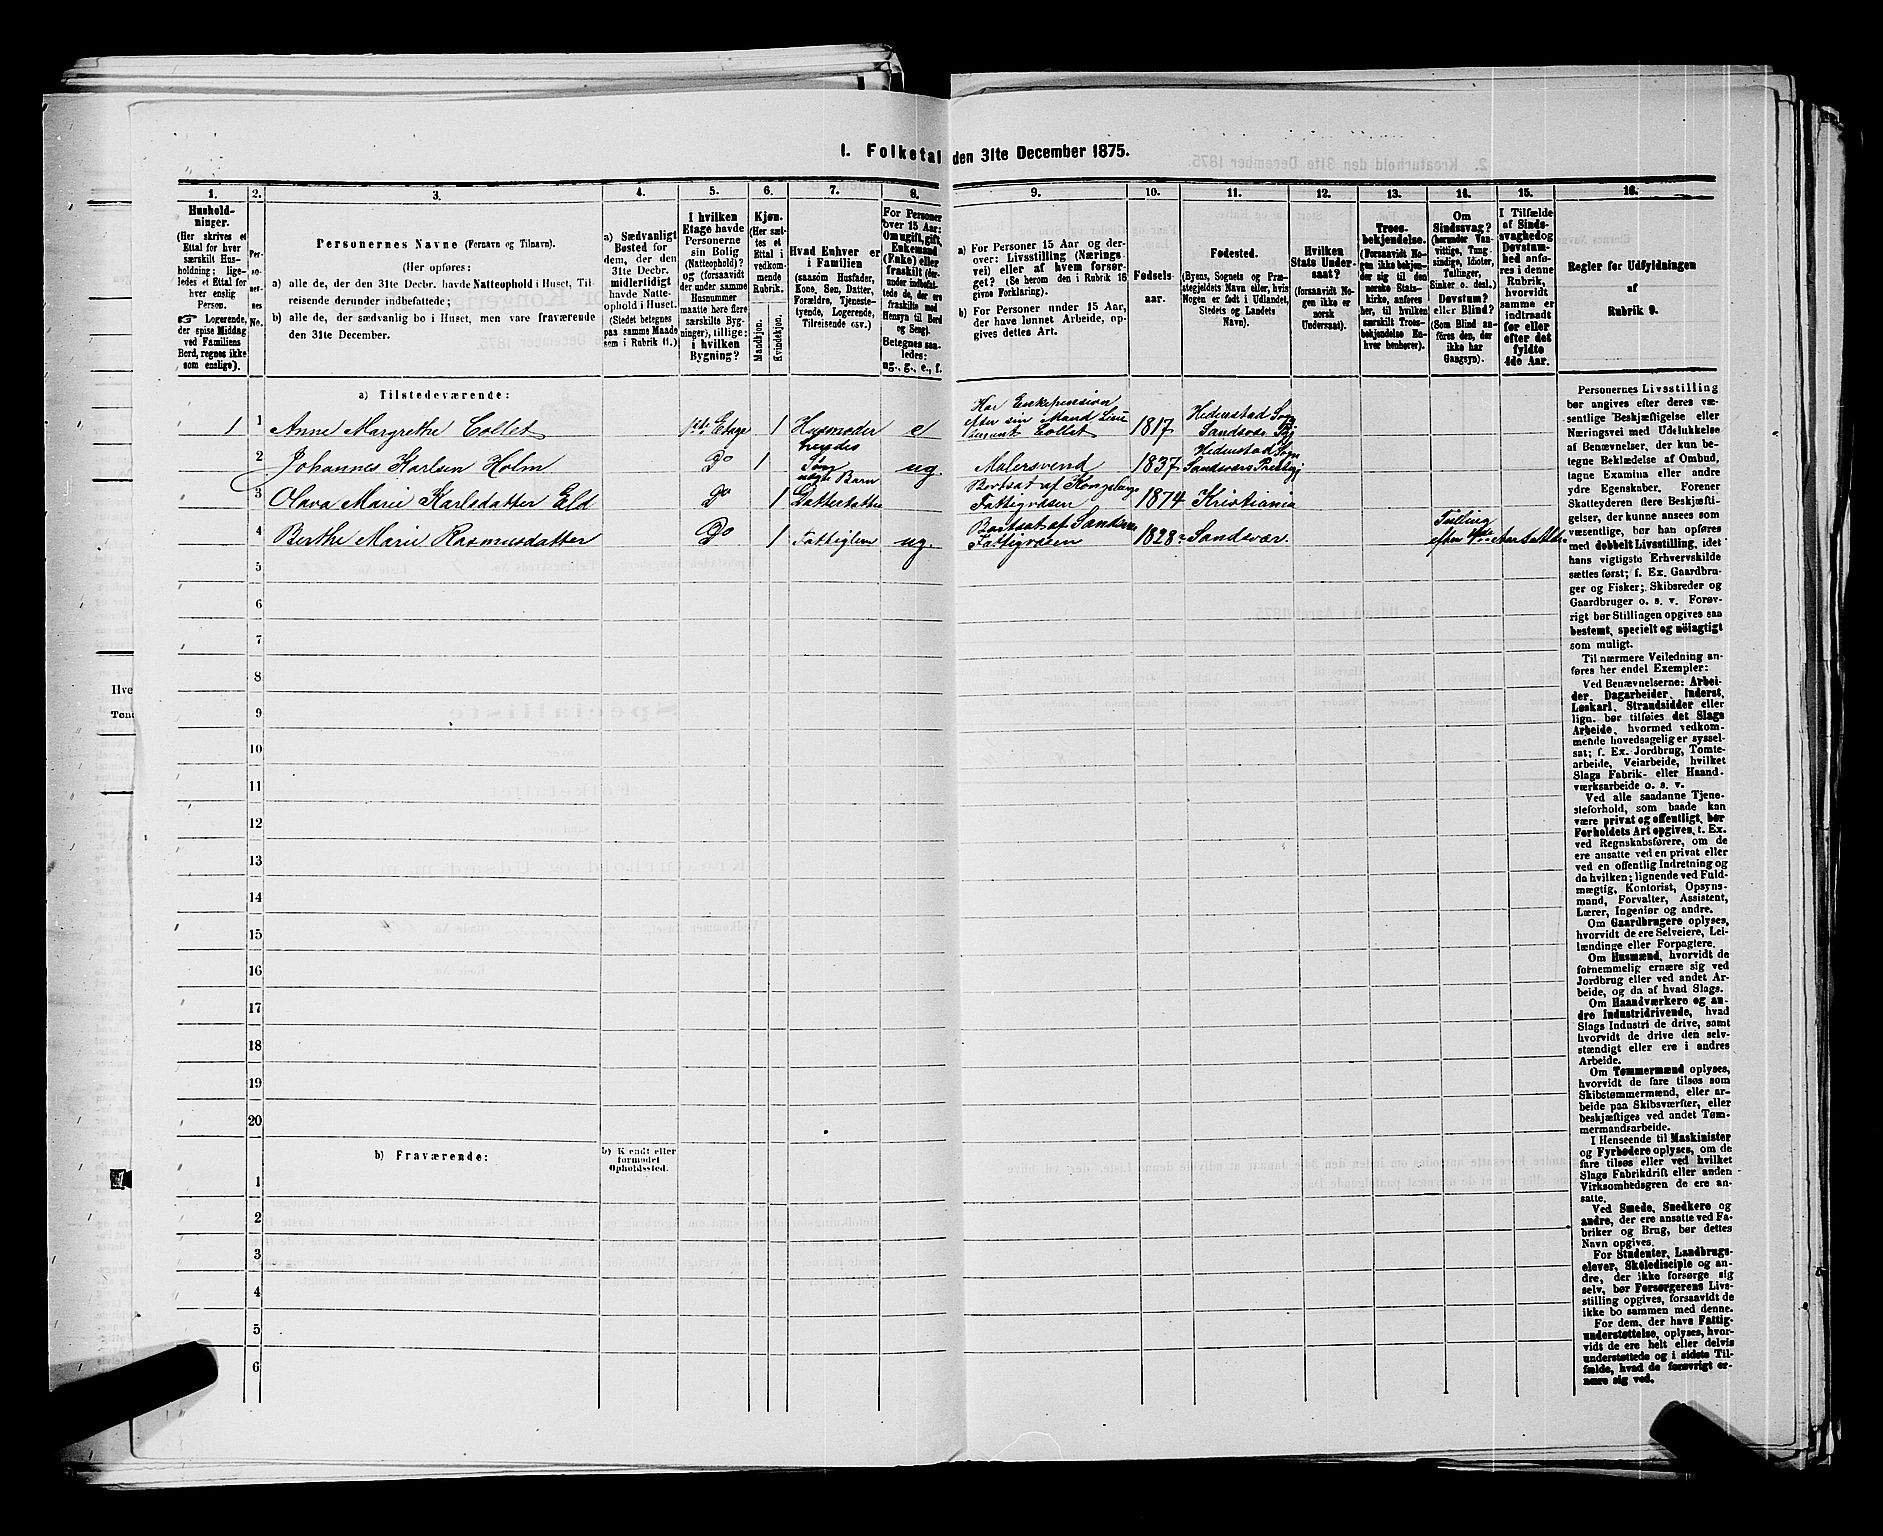 1. Folketal den 31te December 1875.
1. 2. 3. 4. 5. 6. 7. 8. 9. 10. 11. 12. 13. 14. 15. 16.
Hushold-
ninger.
(Her skrives et
Ettal for hver
særskilt Hus-
holdning; lige-
ledes et Ettal for
hver enslig
Person.
Logerende,
der spise Middag
ved Familiens
Bord, regnes ikke
som enslige).
Per-
so-
ner-
nes
No.
Personernes Navne (Fornavn og Tilnavn).
(Her opføres:
a) alle de, der den 31te Decbr. havde Natteophold i Huset, Til-
reisende derunder indbefattede;
b) alle de, der sædvanlig bo i Huset, men vare fraværende
den 31te December.
a) Sædvanligt
Bosted for
dem, der den
31te Decbr.
midlertidigt
havde Natte-
ophold i Huset.
(Stedet betegnes
paa samme Maade
som i Rubrik 11.)
I hvilken
Etage havde
Personerne
sin Bolig
(Natteophold)?
og (forsaavidt
der under samme
Hasnummer
maatte høre flere
særskilte Byg-
ninger), tillige:
i hvilken
Bygning?
Kjøn.
(Her sæt-
tes et
Ettal i
vedkom-
mende
Rubrik.
Mandkjøn.
Kvindekjøn.
Hvad Enhver er
i Familien
(saasom Husfader,
Kone, Søn, Datter,
Forældre, Tjeneste-
tyende, Logerende,
Tilreisende osv.)
For Personer
over 15 Aar:
Om ugift, gift,
Enkemand
(Enke) eller
fraskilt (der-
under indbefat-
tede de, der ere
fraskilte med
Hensyn til Bord
og Seng).
Betegnes saa-
ledes:
ug., g., e., f.
a) For Personer 15 Aar og der-
over: Livsstilling (Nærings-
vei) eller af hvem forsør-
get? (Se herom den i Rubrik 16
givne Forklaring).
b) For Personer under 15 Aar,
der have lønnet Arbeide, op-
gives dettes Art.
Fødsels-
aar.
Fødested.
(Byens, Sognets og Præ-
stegjeldets Navn eller, hvis
Nogen er født i Udlandet,
Stedets og Landets
Navn).
Hvilken
Stats Under-
saat?
(forsaavidt No-
gen ikke er
norsk
Undersaat).
Troes-
bekjendelse.
(Forsaavidt No-
gen ikke bekjen-
der sig til den
norske Stats-
kirke, anføres
her, til hvilken
særskilt Troes-
bekjendelse En-
hver henhører).
Om
Sindssvag?
(herunder Van-
vittige, Tung-
sindige, Idioter,
Tullinger,
Sinker o. desl.)
Døvstum?
eller Blind?
(Som Blind an-
føres den, der
ikke har
Gangsyn).
I Tilfælde
af Sinds-
svaghed og
Døvstum-
hed anfø-
res i denne
Rubrik,
hvorvidt
samme er
indtraadt
før eller
efter det
fyldte
4de Aar.
Regler for Udfyldningen
af
Rubrik 9.
a) Tilstedeværende:
1 1 Anne Margrethe Collet 1ste Etage 1 Husmoder e Har Enkepension efter sin Mand Lieutenant Collet 1817 Hedenstad Sogn Sandsvær Pgj
2 Johannes Karlsen Holm Do 1 hendes Søn ug. Malersvend 1837 Hedenstad Sogn Sandsværs Prestegj
3 Olava Marie Karlsdatter Eld Do 1 uægte Barn Datterdatter Bortsat af Kongsbergs Fattigvæsen 1874 Kristiania
4 Berthe Marie Rasmusdatter Do 1 Fattiglem ug. Bortsat af Sandsvær Fattigvæsen 1828 Sandsvær. Tulling efter 4de Aars Alder
5
6
7
8
9
10
11
12
13
14
15
16
17
18
19
20
b) Fraværende:
b) Kjendt eller
formodet
Opholdssted.
1
2
3
4
5
6
Personernes Livsstilling
bør angives efter deres væ-
sentlige Beskjæftigelse eller
Næringsvei med Udelukkelse
af Benævnelser, der kun be-
tegne Beklædelse af Ombud,
tagne Examina eller andre
ydre Egenskaber. Forener
Skatteyderen flere Beskjæfti-
gelser, der kunne ansees som
væsentlige, bør han opføres
med dobbelt Livsstilling, idet
hans vigtigste Erhvervskilde
sættes først; f. Ex. Gaardbru-
ger og Fisker; Skibsreder og
Gaardbruger o. s. v. Forøv-
rigt bør Stillingen opgives saa
bestemt, specielt og nøiagtigt
som muligt.
Til nærmere Veiledning an-
føres her endel Exempler:
Ved Benævnelserne: Arbei-
der, Dagarbeider, Inderst,
Løskarl, Strandsidder eller
lign. bør tilføies det Slags
Arbeide, hvormed vedkom-
mende hovedsagelig er syssel-
sat; f. Ex. Jordbrug, Tomte-
arbeide, Veiarbeide, hvilket
Slags Fabrik- eller Haand-
værksarbeide o. s. v.
Ved alle saadanne Tjene-
steforhold, som baade kan
være privat og offentligt, bør
Forholdets Art opgives, t. Ex.
ved Regnskabsførere, om de
ere ansatte ved en privat eller
ved en offentlig Indretning og
da hvilken; lignende ved Fuld-
mægtig, Kontorist, Opsyns-
mand, Forvalter, Assistent,
Lærer, Ingeniør og andre.
Om Gaardbrugere oplyses,
hvorvidt de ere Selveiere, Lei-
lændinge eller Forpagtere.
Om Husmænd, hvorvidt de
fornemmelig ernære sig ved
Jordbrug eller ved andet Ar-
beide, og da af hvad Slags.
Om Haandværkere og an-
dre Industridrivende, hvad
Slags Industri de drive, samt
hvorvidt de drive den selv-
stændigt eller ere i andres
Arbeide.
Om Tømmermænd oplyses,
hvorvidt de fare tilsøs som
Skibstømmermænd, eller ar-
beide paa Skibsværfter, eller
beskjæftiges ved andet Tøm-
mermandsarbeide.
I Henseende til Maskinister
og Fyrbødere oplyses, om de
fare tilsøs eller ved hvilket
Slags Fabrikdrift eller anden
Virksomhedsgren de ere an-
satte.
Ved Smede, Snedkere og
andre, der ere ansatte ved Fa-
briker og Brug, bør dettes
Navn opgives.
For Studenter, Landbrugs-
elever, Skoledisciple og an-
dre, der ikke forsørge sig
selv, bør Forsørgerens Livs-
stilling opgives, forsaavidt de
ikke bo sammen med denne.
For dem, der have Fattig-
understøttelse, oplyses, hvor-
vidt de ere helt eller delvis
understøttede og i sidste Til-
fælde, hvad de forøvrigt er-
nære sig ved.